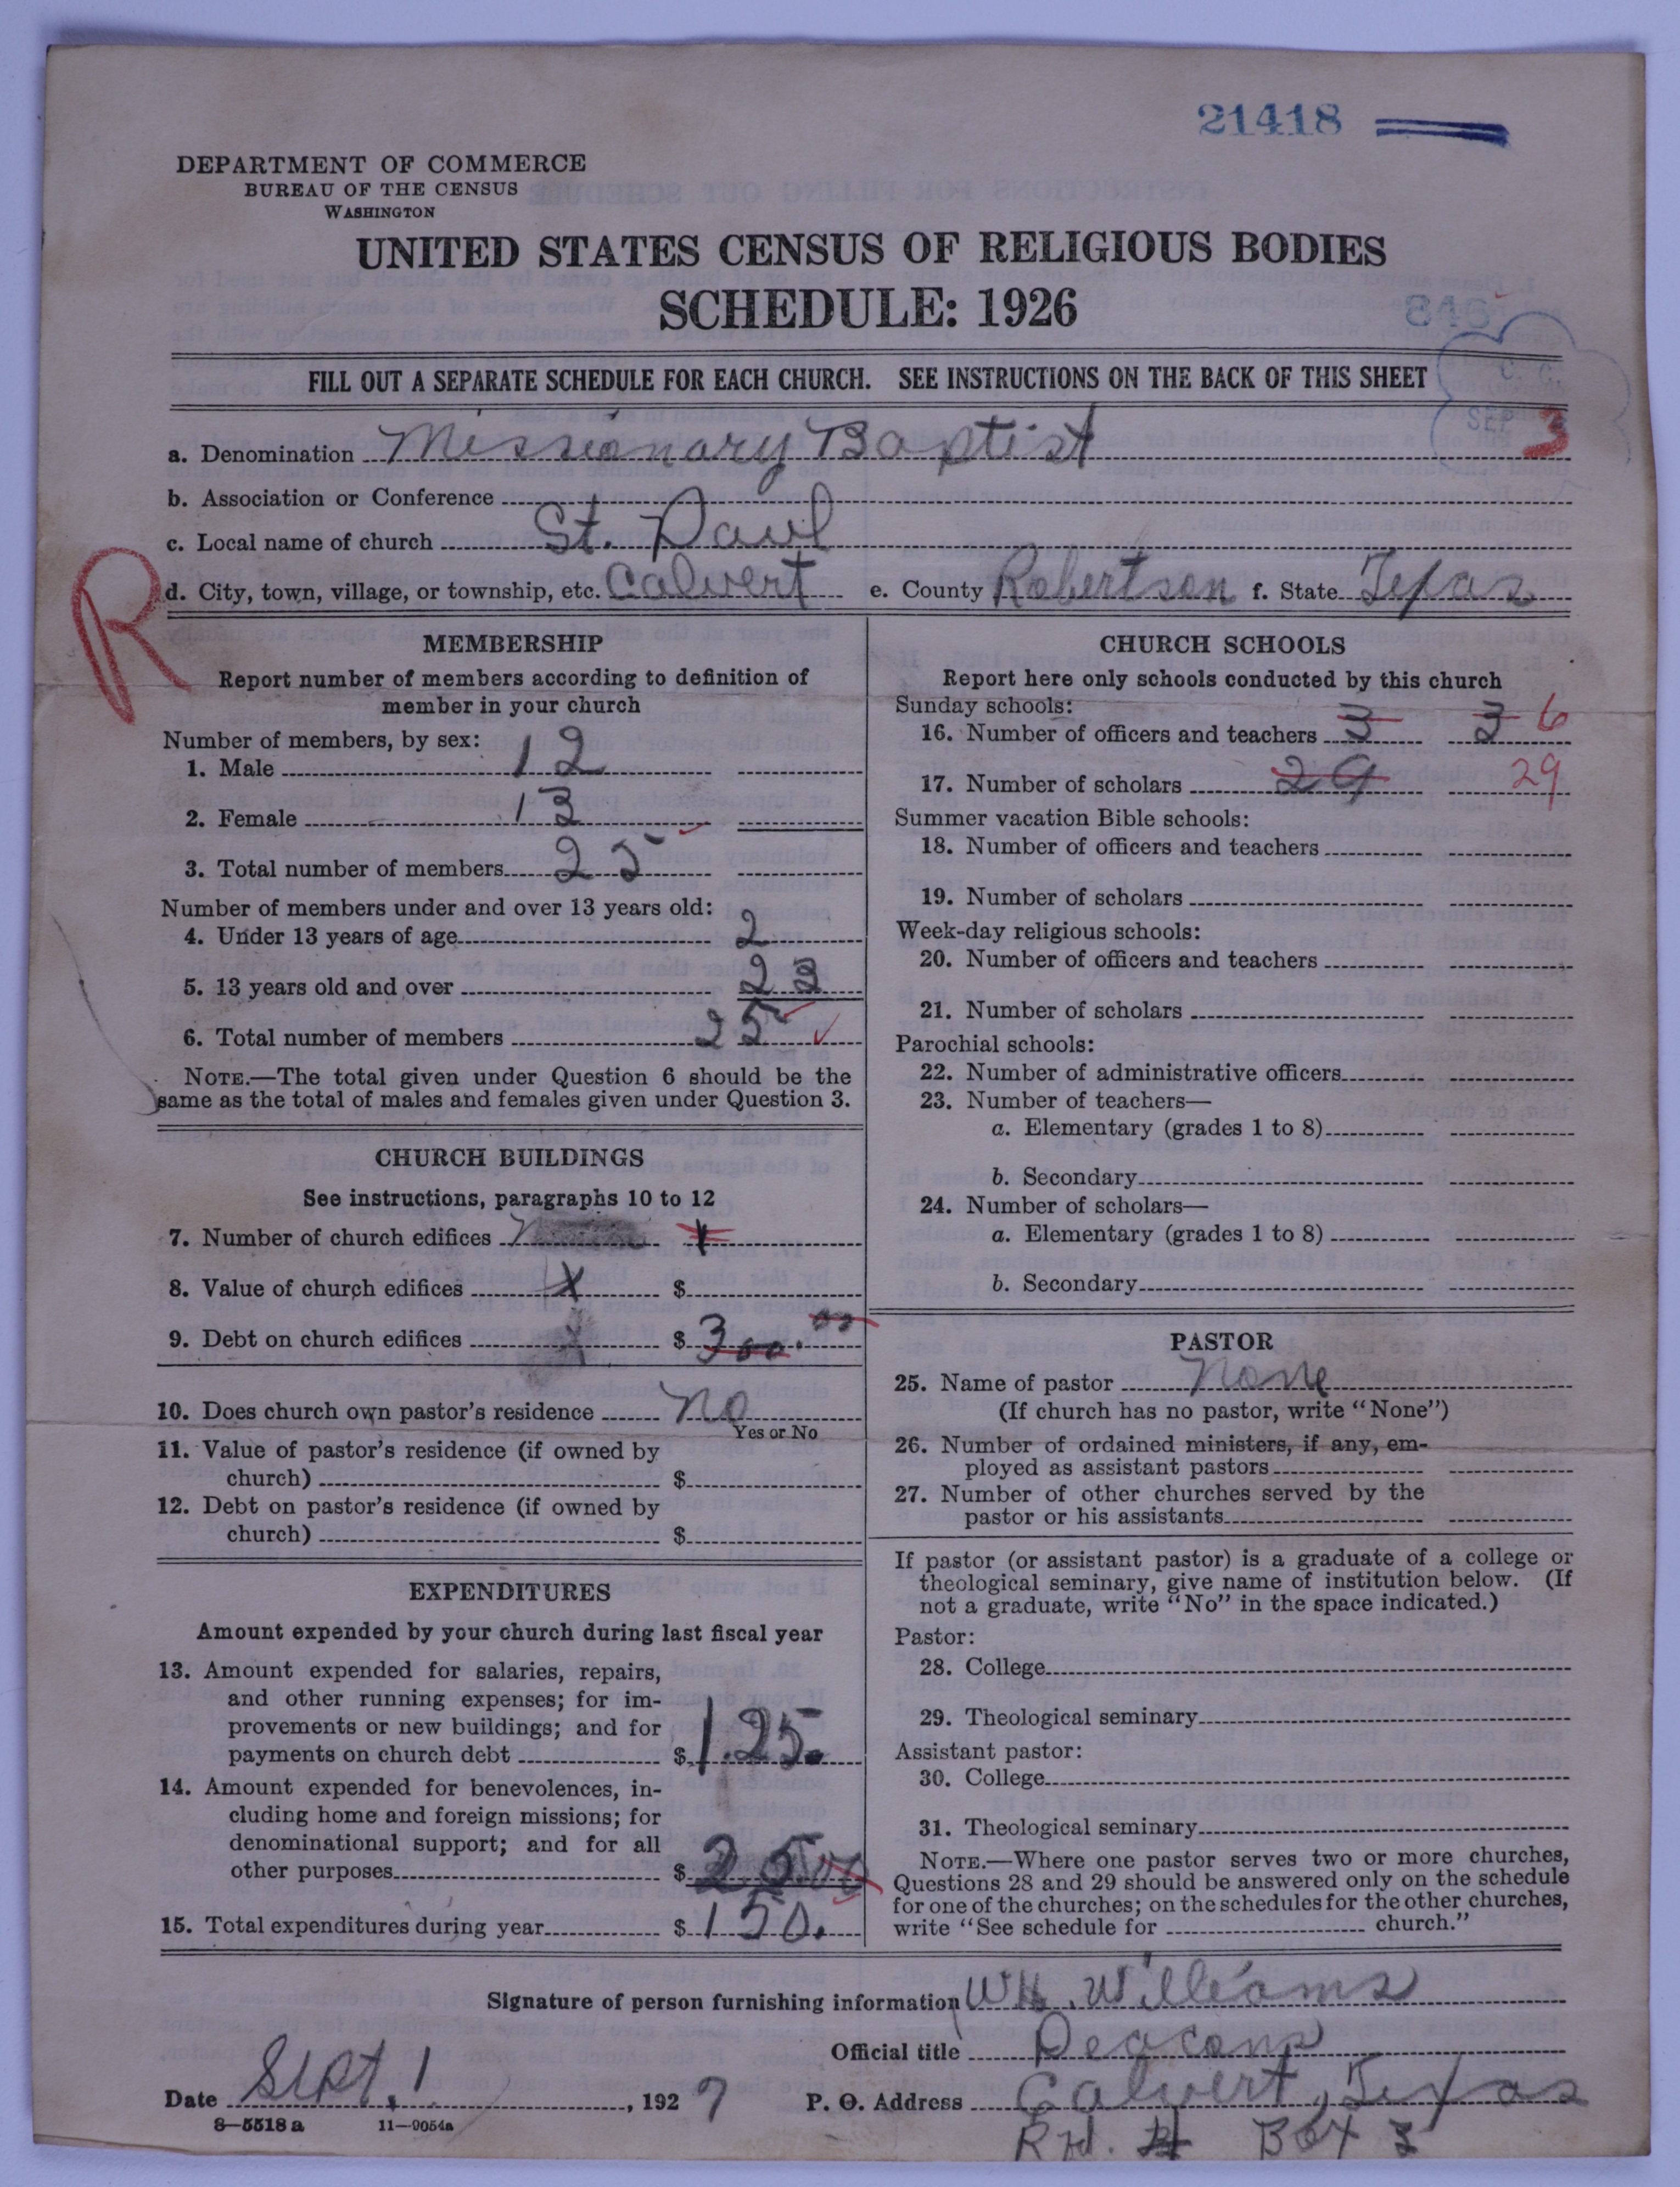 21418
DEPARTMENT OF COMMERCE
BUREAU OF THE CENSUS
WASHINGTON
UNITED STATES CENSUS OF RELIGIOUS BODIES
SCHEDULE: 1926
846
FILL OUT A SEPARATE SCHEDULE FOR EACH CHURCH. SEE INSTRUCTIONS ON THE BACK OF THIS SHEET
SEP 3
a. Denomination Missionary Baptist
b. Association or Conference
c. Local name of church St. Paul
R
d. City, town, village, or township, etc. Calvert e. County Robertson f. State Texas
MEMBERSHIP
Report number of members according to definition of
member in your church
Number of members, by sex:
1. Male 12
2. Female 13
3. Total number of members 25
Number of members under and over 13 years old:
4. Under 13 years of age 2
5. 13 years old and over 23
6. Total number of members 25
NOTE.—The total given under Question 6 should be the
same as the total of males and females given under Question 3.
CHURCH BUILDINGS
See instructions, paragraphs 10 to 12
7. Number of church edifices
8. Value of church edifices X $
9. Debt on church edifices $ 300.00
10. Does church own pastor's residence No
Yes or No
11. Value of pastor's residence (if owned by
church) $
12. Debt on pastor's residence (if owned by
church) $
EXPENDITURES
Amount expended by your church during last fiscal year
13. Amount expended for salaries, repairs,
and other running expenses; for im-
provements or new buildings; and for
payments on church debt $ 125.
14. Amount expended for benevolences, in-
cluding home and foreign missions; for
denominational support; and for all
other purposes $ 25 00
15. Total expenditures during year $ 150.
CHURCH SCHOOLS
Report here only schools conducted by this church
Sunday schools:
16. Number of officers and teachers 3 3 6
17. Number of scholars 29 29
Summer vacation Bible schools:
18. Number of officers and teachers
19. Number of scholars
Week-day religious schools:
20. Number of officers and teachers
21. Number of scholars
Parochial schools:
22. Number of administrative officers
23. Number of teachers—
a. Elementary (grades 1 to 8)
b. Secondary
24. Number of scholars—
a. Elementary (grades 1 to 8)
b. Secondary
PASTOR
25. Name of pastor None
(If church has no pastor, write "None")
26. Number of ordained ministers, if any, em-
ployed as assistant pastors
27. Number of other churches served by the
pastor or his assistants
If pastor (or assistant pastor) is a graduate of a college or
theological seminary, give name of institution below. (If
not a graduate, write "No" in the space indicated.)
Pastor:
28. College
29. Theological seminary
Assistant pastor:
30. College
31. Theological seminary
NOTE.—Where one pastor serves two or more churches,
Questions 28 and 29 should be answered only on the schedule
for one of the churches; on the schedules for the other churches,
write "See schedule for church."
Signature of person furnishing information W.H. Williams
Official title Deacons
Date Sept. 1, 1927 P. O. Address Calvert, Texas
8—5518 a 11—9054a
Box 3